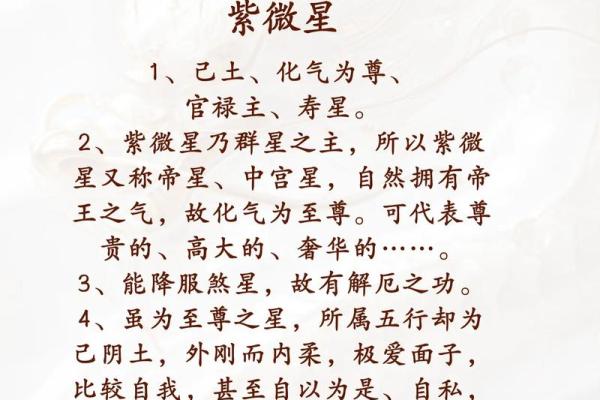 紫微星
1、己土、化气为尊、
官禄主、寿星。
2、紫微星乃群星之主，所以紫微
星又称帝星、中宫星，自然拥有帝
王之气，故化气为至尊。可代表尊
贵的、高大的、奢华的……。
3、能降服煞星，故有解厄之功。
4、虽为至尊之星，所属五行却为
己阴土，外刚而内柔，极爱面子，
比较自我，甚至自以为是、自私，